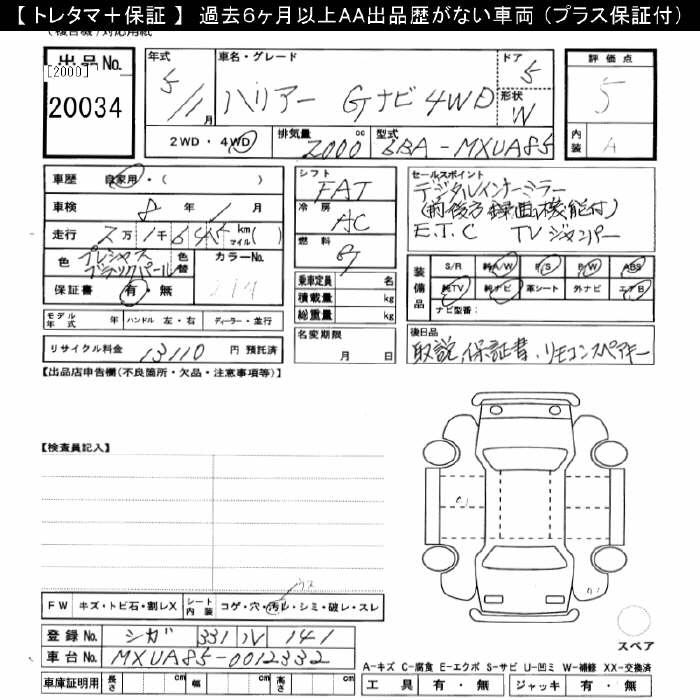 【トレタマ＋保証】 過去６ヶ月以上ＡＡ出品歴がない車両 (プラス保証付)
出品No. [2000] 20034
年式 5／11月 車名・グレード ハリアー Gナビ 4WD ドア 5 形状 W 評価点 5
2WD・4WD 排気量 2000 cc 型式 6BA-MXUA85 内装 A
車歴 自家用・( )
車検 8年 1月
走行 2万1千 km マイル( )
色 プレシャスブラックパール 色替 カラーNo.
保証書 有・無
モデル年式 年 ハンドル 左・右 ディーラー・並行
リサイクル料金 13110 円 預託済
シフト FAT
冷房 AC
燃料 G
乗車定員 名
積載量 kg
総重量 kg
名変期限 月 日
セールスポイント
デジタルインナーミラー
(前後方録画機能付)
E.T.C TVジャンパー
装備品 S/R 純A/W P/S P/W ABS
純TV 純ナビ 革シート 外ナビ エアB
ナビ型番：
後日品
取説、保証書、リモコンスペアキー
【出品店申告欄(不良箇所・欠品・注意事項等)】
【検査員記入】
FW キズ・トビ石・割レX シート内装 コゲ・穴・汚レ・シミ・破レ・スレ
ウス
登録No. シガ 331 ル 141
車台No. MXUA85-0012332
車庫証明用 長さ cm 幅 cm 高さ cm
A1
スペア
A-キズ C-腐食 E-エクボ S-サビ U-凹ミ W-補修 XX-交換済
工具 有・無 ジャッキ 有・無